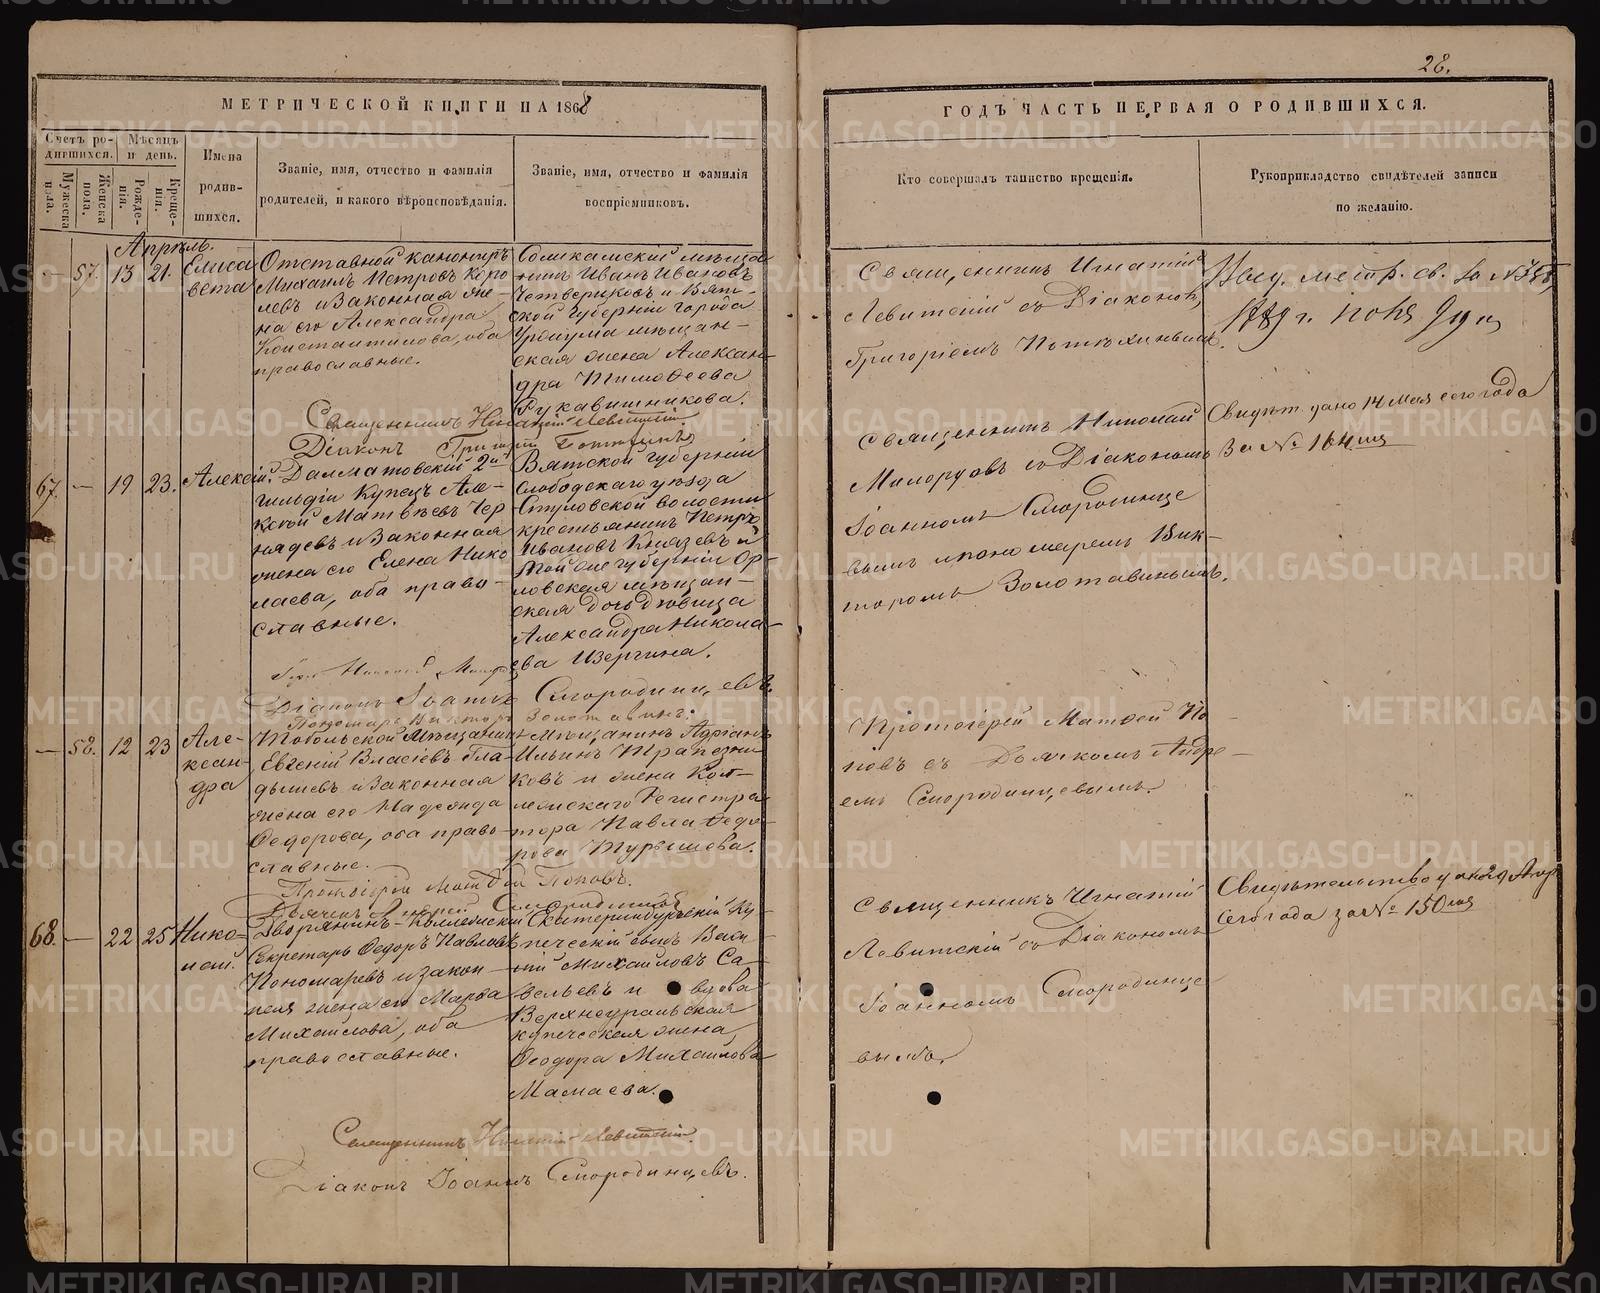 28.
МЕТРИЧЕСКОЙ КНИГИ НА 1868
ГОДЪ ЧАСТЬ ПЕРВАЯ О РОДИВШИХСЯ.
Счетъ ро-
дившихся.
Мѣсяцъ
и день.
Мужеска
пола.
Женска
пола.
Рожде-
нія.
Креще-
нія.
Имена
родив-
шихся.
Званіе, имя, отчество и фамилія
родителей, и какого вѣроисповѣданія.
Званіе, имя, отчество и фамилія
воспріемниковъ.
Кто совершалъ таинство крещенія.
Рукоприкладство свидѣтелей записи
по желанію.
Апрѣль.
— 57. 13 21.
Елиса
вета
Отставной канониръ
Михаилъ Петровъ Коро
левъ и законная же
на его Александра
Константинова, оба
православные.
Соликамскій мѣща
нинъ Иванъ Ивановъ
Четвериковъ и Вят
ской губерніи города
Уржума мѣщан-
ская жена Алексан-
дра Тимофеева
Рукавишникова.
Священникъ Игнатій
Левитскій съ Діакономъ
Григоріемъ
Священникъ Игнатій Левитскій.
Діаконъ Григорій
67. — 19 23.
Алексій.
Далматовскій 2й
гильдіи купецъ Але-
ксѣй Матвѣевъ Чер
надевъ и законная
жена его Елена Нико
лаева, оба право-
славные.
Вятской губерніи
Слободскаго уѣзда
Стуловской волости
крестьянинъ Петръ
Ивановъ Князевъ и
той же губерніи Ор-
ловская мѣщан-
ская дочь дѣвица
Александра Никола-
ева Изергина.
Священникъ Николай
Милорудовъ съ Діакономъ
Іоанномъ Смородинце
вымъ и пономаремъ Вик-
торомъ Золотавинымъ.
Свидѣт. дано 14 мая сего года
За № 164мъ
Діаконъ Іоаннъ Смородинцевъ.
Пономарь Викторъ Золотавинъ.
— 58. 12 23
Але-
ксан-
дра
Тобольской мѣщанинъ
Евгеній Власіевъ Гла-
дышевъ и законная
жена его Надежда
Федорова, оба право-
славные.
Мѣщанинъ Адріанъ
Ильинъ Трапезни
ковъ и жена Кол-
лежскаго Регистра
тора Павла Федо-
рова Турышова.
Протоіерей Матфей По
повъ съ Дьячкомъ Андре-
емъ Смородинцевымъ.
Протоіерей Матфей Поповъ.
Дьячекъ Андрей Смородинцевъ
68. — 22 25
Нико-
лай.
Дворянинъ-Коллежскій
Секретарь Федоръ Павловъ
Пономаревъ и закон-
ная жена его Марфа
Михайлова, оба
православные.
Екатеринбургскій ку
печескій сынъ Васи
лій Михайловъ Са-
вельевъ и вдова
Верхнеуральская
купеческая жена,
Феодора Михайлова
Мамаева.
Священникъ Игнатій
Левитскій съ Діакономъ
Іоанномъ Смородинце
вымъ.
Свидѣтельство дано 29 Апр
Сего года за № 150мъ
Священникъ Игнатій Левитскій.
Діаконъ Іоаннъ Смородинцевъ.
METRIKI.GASO-URAL.RU